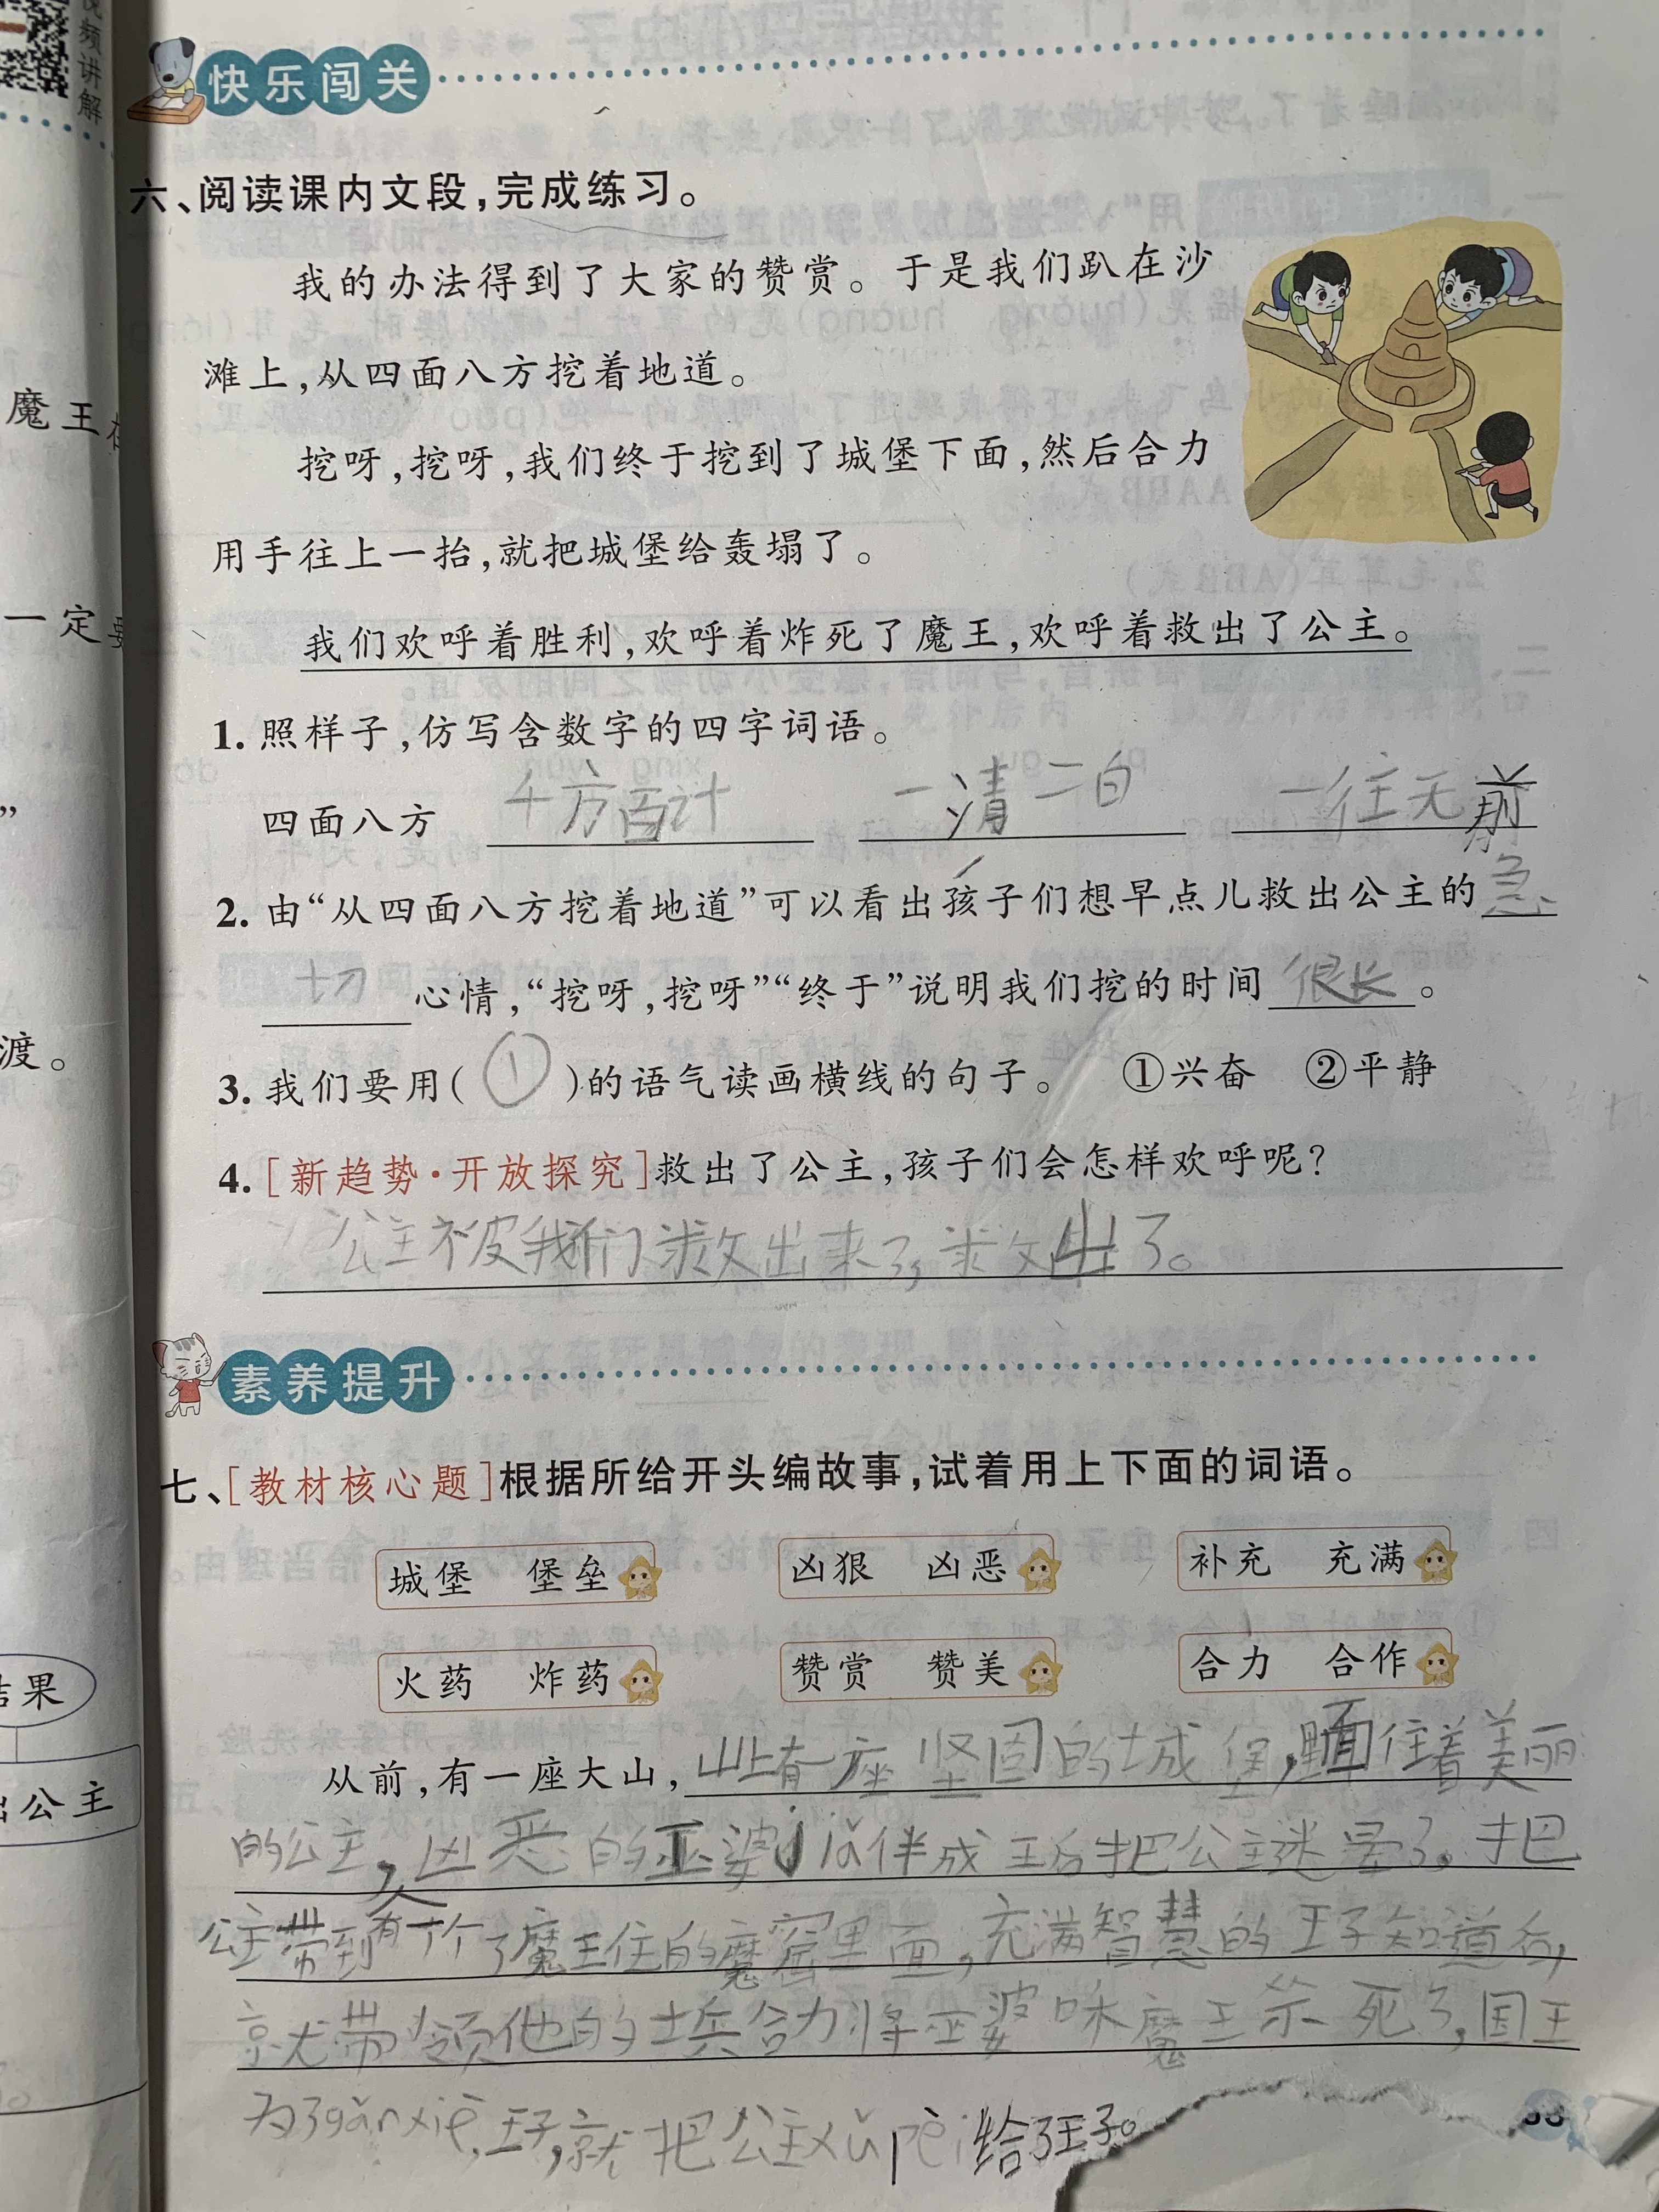 视频讲解
快乐闯关
六、阅读课内文段,完成练习。
我的办法得到了大家的赞赏。于是我们趴在沙
滩上,从四面八方挖着地道。
挖呀,挖呀,我们终于挖到了城堡下面,然后合力
用手往上一抬,就把城堡给轰塌了。
我们欢呼着胜利,欢呼着炸死了魔王,欢呼着救出了公主。
1. 照样子,仿写含数字的四字词语。
四面八方 千方百计 一清二白 一往无前
2. 由“从四面八方挖着地道”可以看出孩子们想早点儿救出公主的急
切心情,“挖呀,挖呀”“终于”说明我们挖的时间很长。
3. 我们要用(①)的语气读画横线的句子。 ①兴奋 ②平静
4. [新趋势·开放探究]救出了公主,孩子们会怎样欢呼呢?
公主被我们救出来了,救出了。
素养提升
七、[教材核心题]根据所给开头编故事,试着用上下面的词语。
城堡 堡垒 凶狠 凶恶 补充 充满
火药 炸药 赞赏 赞美 合力 合作
从前,有一座大山,山上有一座坚固的城堡,里面住着美丽
的公主,凶恶的巫婆jiǎ伴成王后把公主迷晕了。把
公主带到了魔王住的魔窟里面,充满智慧的王子知道后,
就带领他的士兵合力将巫婆和魔王杀死了,国王
为了gǎnxiè王子,就把公主xǔpèi给了王子。
魔王在
一定要
”
渡。
结果
出公主